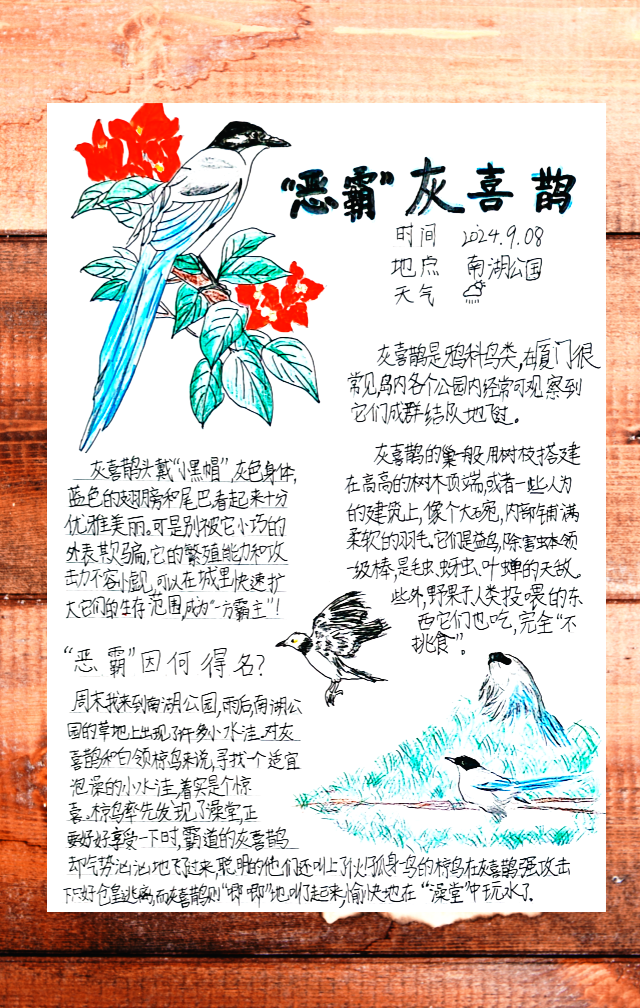 “恶霸”灰喜鹊
时间 2024.9.08
地点 南湖公园
天气
灰喜鹊是鸦科鸟类,在厦门很
常见,岛内各个公园内经常可观察到
它们成群结队地飞过。
灰喜鹊头戴“小黑帽”灰色身体,
蓝色的翅膀和尾巴看起来十分
优雅美丽。可是别被它小巧的
外表欺骗,它的繁殖能力和攻
击力不容小觑,可以在城里快速扩
大它们的生存范围,成为“一方霸主”!
灰喜鹊的巢一般用树枝搭建
在高高的树木顶端,或者一些人为
的建筑上,像个大碗,内部铺满
柔软的羽毛.它们是益鸟,除害虫本领
一级棒,是毛虫、蚜虫、叶蝉的天敌。
些外,野果子、人类投喂的东
西它们也吃,完全“不
挑食”。
“恶霸”因何得名?
周末我来到南湖公园,雨后,南湖公
园的草地上出现了许多小水洼.对灰
喜鹊和白领椋鸟来说,寻找个适宜
泡澡的小水洼,着实是个惊
喜.椋鸟率先发现了澡堂,正
要好好享受一下时,霸道的灰喜鹊
却气势汹汹地飞过来,聪明的他们还叫上了伙伴,孤身鸟的椋鸟在灰喜鹊强攻击
下只好仓皇逃离,而灰喜鹊则“唧唧”地叫了起来,愉快地在“澡堂”中玩水了.